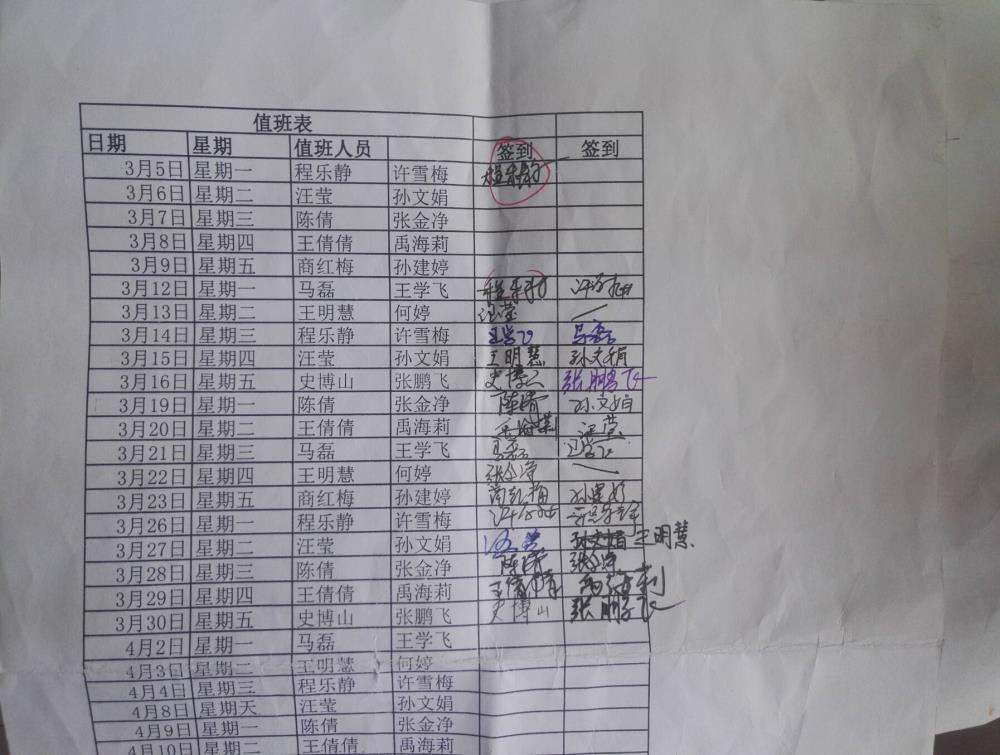 值班表
日期 星期 值班人员 签到 签到
3月5日 星期一 程乐静 许雪梅 程乐静
3月6日 星期二 汪莹 孙文娟
3月7日 星期三 陈倩 张金净
3月8日 星期四 王倩倩 禹海莉
3月9日 星期五 商红梅 孙建婷
3月12日 星期一 马磊 王学飞 程乐静 许雪梅
3月13日 星期二 王明慧 何婷 汪莹
3月14日 星期三 程乐静 许雪梅 王学飞 马磊
3月15日 星期四 汪莹 孙文娟 王明慧 孙文娟
3月16日 星期五 史博山 张鹏飞 史博山 张鹏飞
3月19日 星期一 陈倩 张金净 陈倩 孙文娟
3月20日 星期二 王倩倩 禹海莉 汪莹
3月21日 星期三 马磊 王学飞 马磊 王学飞
3月22日 星期四 王明慧 何婷 张金净
3月23日 星期五 商红梅 孙建婷 商红梅 孙建婷
3月26日 星期一 程乐静 许雪梅 许雪梅
3月27日 星期二 汪莹 孙文娟 汪莹 孙文娟 王明慧
3月28日 星期三 陈倩 张金净 陈倩 张金净
3月29日 星期四 王倩倩 禹海莉 王倩倩 禹海莉
3月30日 星期五 史博山 张鹏飞 史博山 张鹏飞
4月2日 星期一 马磊 王学飞
4月3日 星期二 王明慧 何婷
4月4日 星期三 程乐静 许雪梅
4月8日 星期天 汪莹 孙文娟
4月9日 星期一 陈倩 张金净
4月10日 星期二 王倩倩 禹海莉